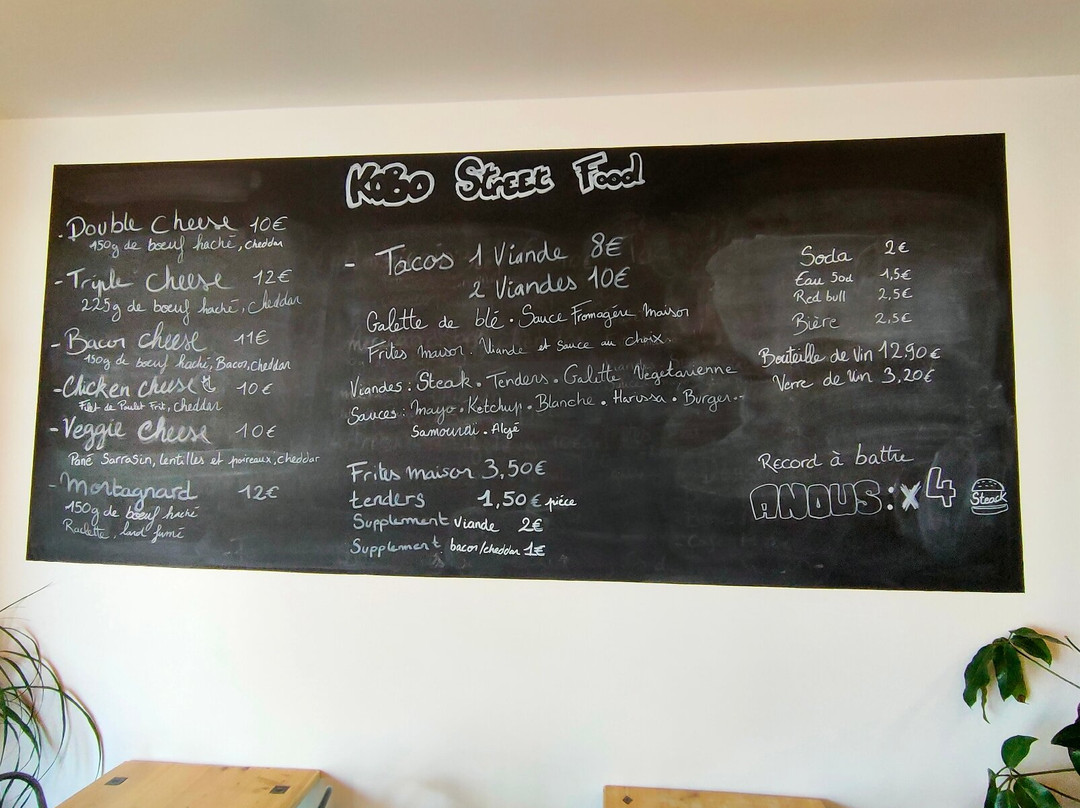 KoBo Street Food
- Double Cheese 10€
150g de boeuf haché, cheddar
- Triple cheese 12€
225g de boeuf haché, Cheddar
- Bacon cheese 11€
150g de boeuf haché, Bacon, cheddar
- Chicken cheese 10€
Filet de Poulet Frit, cheddar
- Veggie cheese 10€
Pané Sarrasin, lentilles et poireaux, cheddar
- Montagnard 12€
150g de boeuf haché
Raclette, lard fumé
- Tacos 1 Viande 8€
2 Viandes 10€
Galette de blé . Sauce Fromagère Maison
Frites maison . Viande et Sauce au choix.
Viandes : Steak . Tenders . Galette Vegetarienne
Sauces : Mayo . Ketchup . Blanche . Harissa . Burger .
Samouraï . Algé
Frites maison 3,50€
tenders 1,50€ pièce
Supplement Viande 2€
Supplement bacon/cheddar 1€
Soda 2€
Eau 50cl 1,5€
Red bull 2,5€
Bière 2,5€
Bouteille de vin 12.90€
Verre de vin 3,20€
Record à battre
ANOUS : x4 Steack